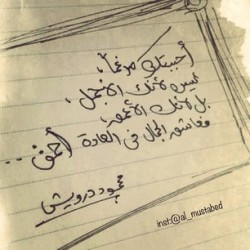 أحببتك مرغماً
ليس لأنك الأجمل،
بل لأنك الأعمق،
فعاشق الجمال في العادة أحمق ..
محمود درويش
inst:@al_mustabed